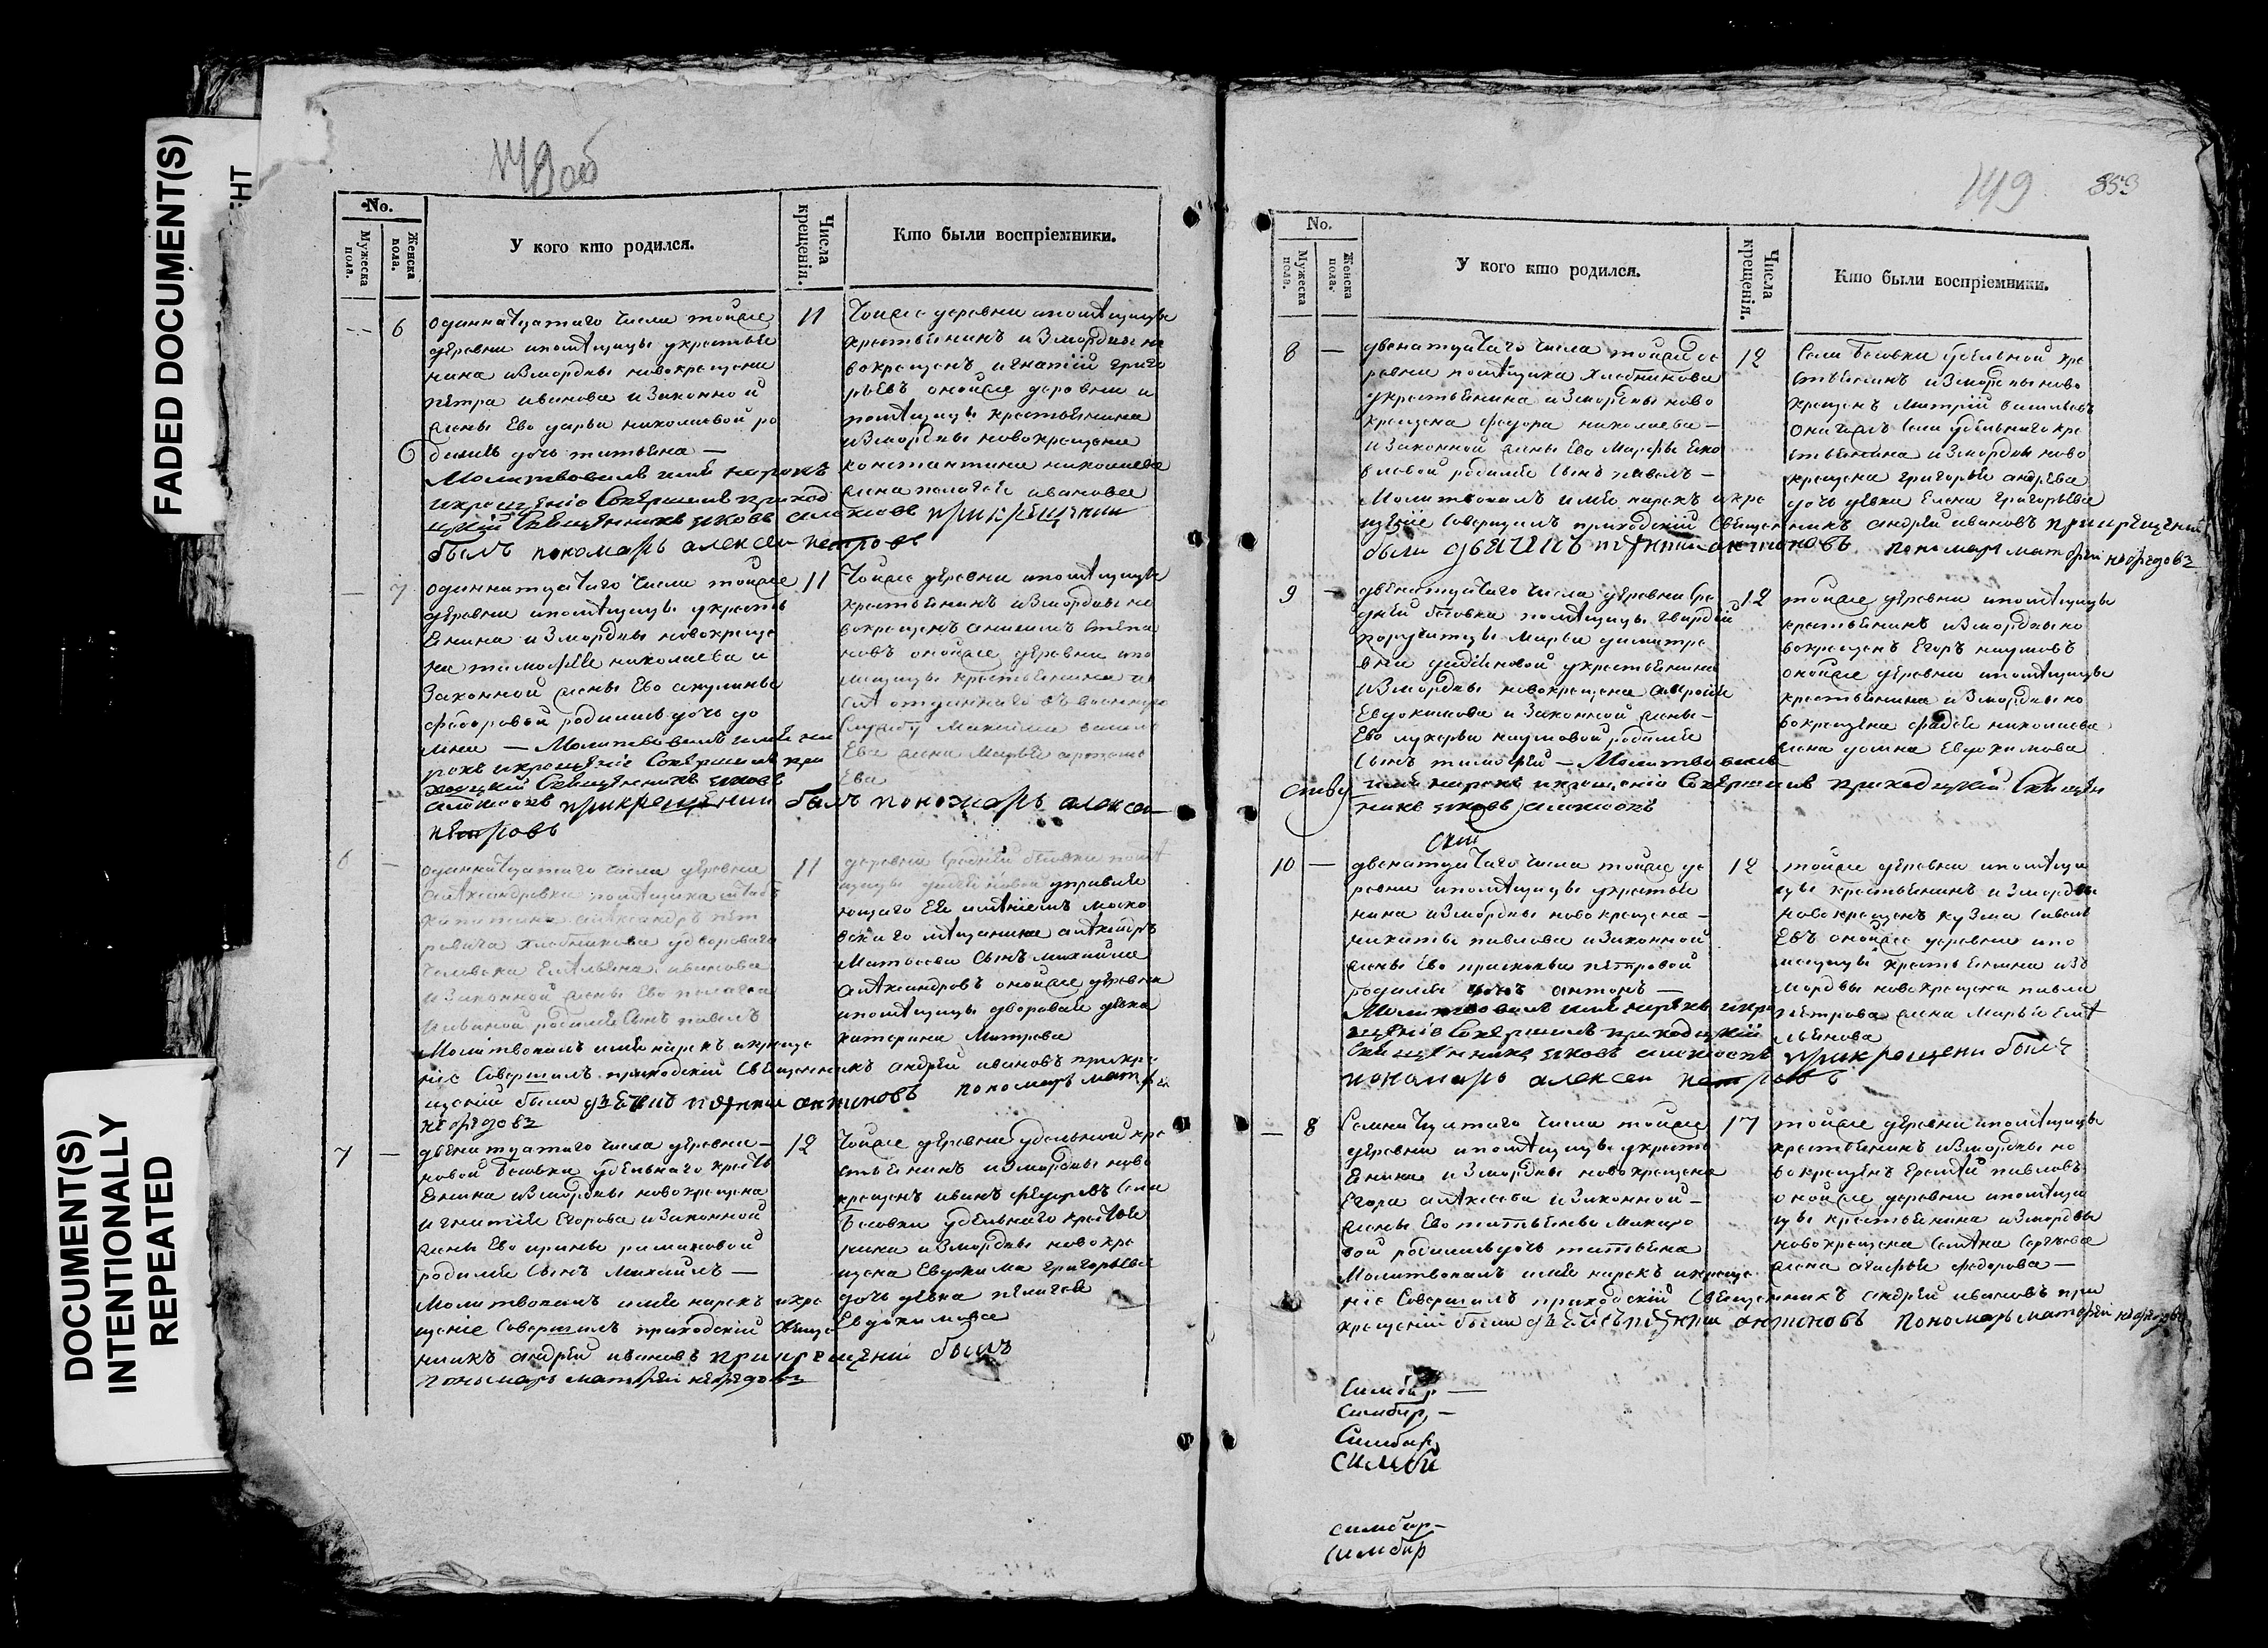 FADED DOCUMENT(S)
DOCUMENT(S)
INTENTIONALLY
REPEATED
148об
No.
Мужеска пола.
Женска пола.
У кого кто родился.
Числа крещенія.
Кто были воспріемники.
6
одиннатцатаго числа тойже
деревни ипомѣщицы укрестья
нина измордвы новокрещена
петра иванова изаконной
жены Ево дарьи николаевой ро
дилась дочь татьяна —
Молитвовалъ имя нарекъ
икрещеніе Совершилъ приход
цкій Священникъ яковъ прикрещении
былъ пономарь алексеи петровъ
11
тойже деревни ипомѣщицы
крестьянинъ измордвы но
вокрещенъ игнатій григо
рьевъ онойже деревни и
помѣщицы крестьянина
измордвы новокрещена
константина николаева
жена пелагея иванова
7
одиннатцатаго числа тойже
деревни ипомѣщицы укресть
янина измордвы новокреще
на тимофея николаева и
законной жены Ево акулины
федоровой родилась дочь до
мна — Молитвовалъ имя на
рекъ икрещеніе Совершилъ при
ходцкій Священникъ яковъ
прикрещении былъ пономарь алексеи
петровъ
11
тойже деревни ипомѣщицы
крестьянинъ измордвы но
вокрещенъ степа
новъ онойже деревни ипо
мещицы крестьянина
отданнаго въ военную
Службу Михаила
жена Марья
6
одиннатцатаго числа деревни
александровки помѣщика штабъ
капитана александръ пет
ровича Хлебникова удвороваго
человека Емельяна иванова
изаконной жены Ево пелагеи
родился Сынъ павелъ
Молитвовалъ имя нарекъ икреще
ніе Совершилъ приходскій Священникъ андрей ивановъ прикре
щеніи были дьячекъ антиповъ пономарь матфей
нефедовъ
11
деревни Средней бесовки помѣ
щицы управля
ющаго Ея имѣніемъ моско
вскаго мещанина
Матвеева Сынъ михайла
александровъ онойже деревни
ипомѣщицы дворовая девка
катерина Митрева
7
двенатцатаго числа деревни
новой бесовки удельнаго кресть
янина измордвы новокрещена
игнатія Егорова изаконной
жены Ево ирины романовой
родился Сынъ Михаилъ —
Молитвовалъ имя нарекъ икре
щеніе Совершилъ приходскій Свяще
нникъ андрей ивановъ прикрещеніи былъ
пономарь матфей нефедовъ
12
тойже деревни удельной кре
стьянинъ измордвы ново
крещенъ иванъ федоровъ Села
Бесовки удельнаго крестья
нина измордвы новокре
щена Евдокима григорьева
дочь девка пелагея
Евдокимова
149
853
No.
Мужеска пола.
Женска пола.
У кого кто родился.
Числа крещенія.
Кто были воспріемники.
8
двенатцатаго числа тойже де
ревни помѣщика Хлебникова
укрестьянина измордвы ново
крещена федора николаева —
изаконной жены Ево Марфы яко
влевой родился Сынъ павелъ —
Молитвовалъ имя нарекъ икре
щеніе Совершилъ приходскій Священникъ андрей ивановъ прикрещеніи
были дьячекъ антиповъ пономарь матфей нефедовъ
12
Села Бесовки удельной кре
стьянинъ измордвы ново
крещенъ Митрій васильевъ
оногожъ Села удельнаго кре
стьянина измордвы ново
крещена григорья андреева
дочь девка Елена григорьева
9
двенатцатаго числа деревни Сре
дней бесовки помѣщицы гвардіи
порутчицы Марьи димитре
вны укрестьянина
измордвы новокрещена
Евдокимова изаконной жены —
Ево лукерьи наумовой родился
Сынъ тимофей — Молитвовалъ
имя нарекъ икрещеніе Совершилъ приходцкій Священ
никъ яковъ
12
тойже деревни ипомѣщицы
крестьянинъ измордвы но
вокрещенъ Егоръ наумовъ
онойже деревни ипомѣщицы
крестьянина измордвы но
вокрещена фадея николаева
жена домна Евдокимова
10
двенатцатаго числа тойже де
ревни ипомѣщицы укрестья
нина измордвы новокрещена —
никиты павлова изаконной
жены Ево прасковьи петровой
родился антонъ —
Молитвовалъ имя нарекъ икре
щеніе Совершилъ приходцкій
Священникъ яковъ прикрещени былъ
пономарь алексеи петровъ
12
тойже деревни ипомѣщи
цы крестьянинъ измордвы
новокрещенъ кузма савель
евъ онойже деревни ипо
мещицы крестьянина изъ
мордвы новокрещена павла
петрова жена Марья Емѣ
льянова
8
Семнатцатаго числа тойже
деревни ипомѣщицы укресть
янина измордвы новокрещена
Егора алексеева изаконной —
жены Ево татьяны Макаро
вой родилась дочь татьяна
Молитвовалъ имя нарекъ икреще
ніе Совершилъ приходскій Священникъ андрей ивановъ при
крещеніи были дьячекъ антиповъ пономарь матфей нефедовъ
17
тойже деревни ипомѣщицы
крестьянинъ измордвы но
вокрещенъ Еремѣй павловъ
онойже деревни ипомѣщи
цы крестьянина измордвы
новокрещена Семѣна Сергѣева
жена агафья федорова —
Симбир —
Симбир —
Симбир
Симби
симбир —
Симбир